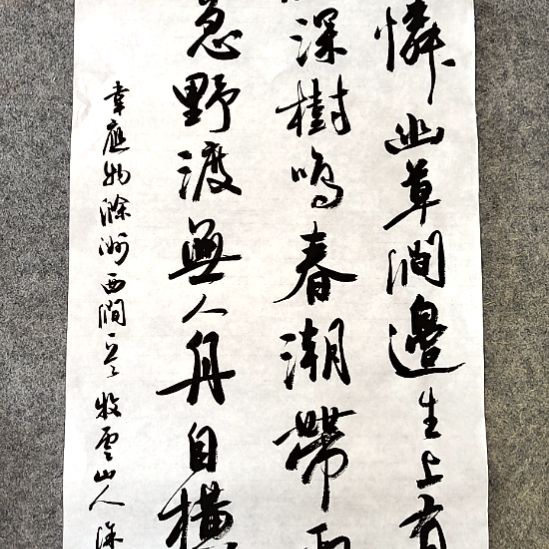 憐幽草澗邊生上有
深樹鳴春潮帶雨
急野渡無人舟自橫
韋應物滁州西澗一首 牧雲山人 深